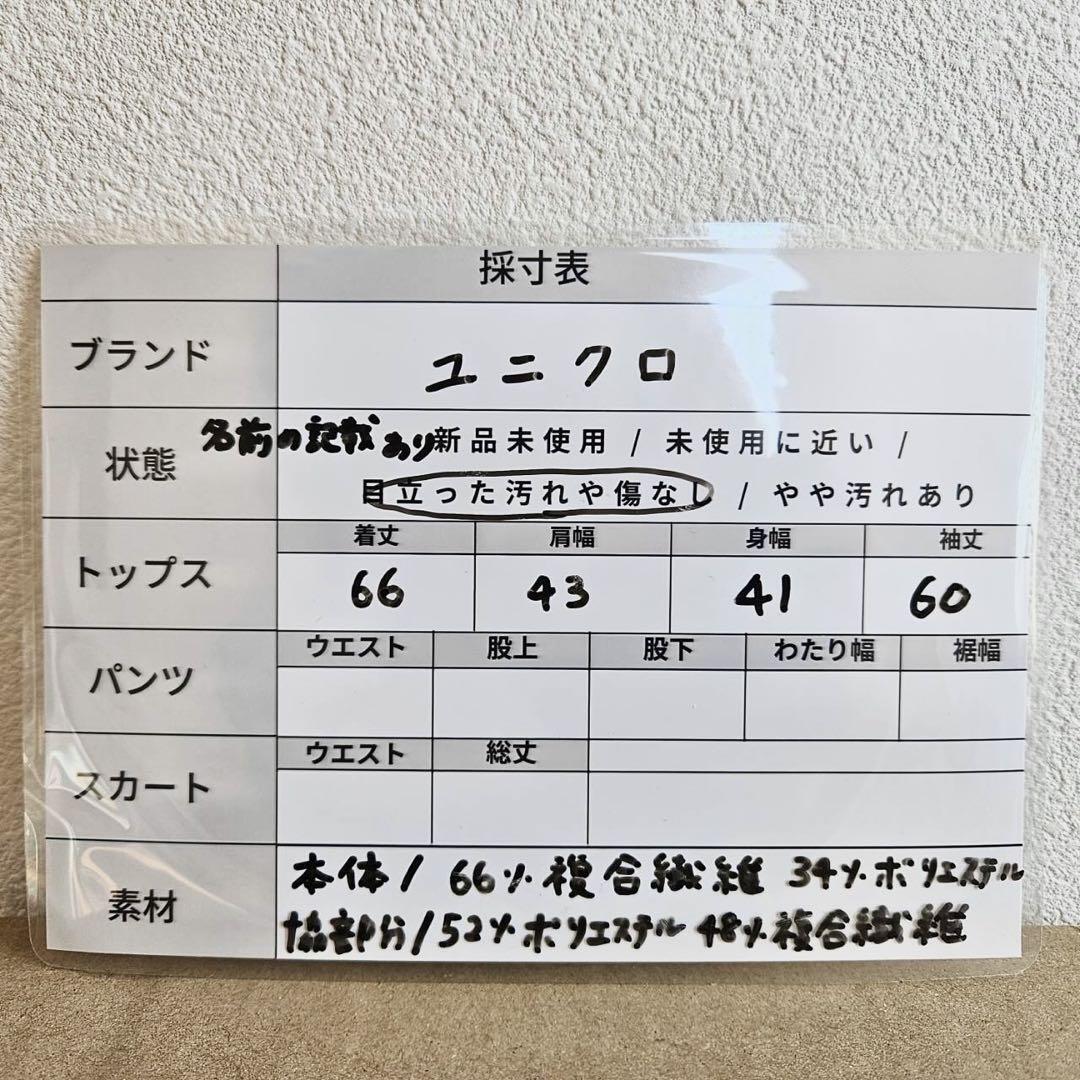 採寸表
ブランド ユニクロ
状態 名前の記載あり 新品未使用 / 未使用に近い /
目立った汚れや傷なし / やや汚れあり
着丈 肩幅 身幅 袖丈
トップス 66 43 41 60
ウエスト 股上 股下 わたり幅 裾幅
パンツ
ウエスト 総丈
スカート
素材
本体/ 66%複合繊維 34%ポリエステル
協部分/52%ポリエステル 48%複合繊維